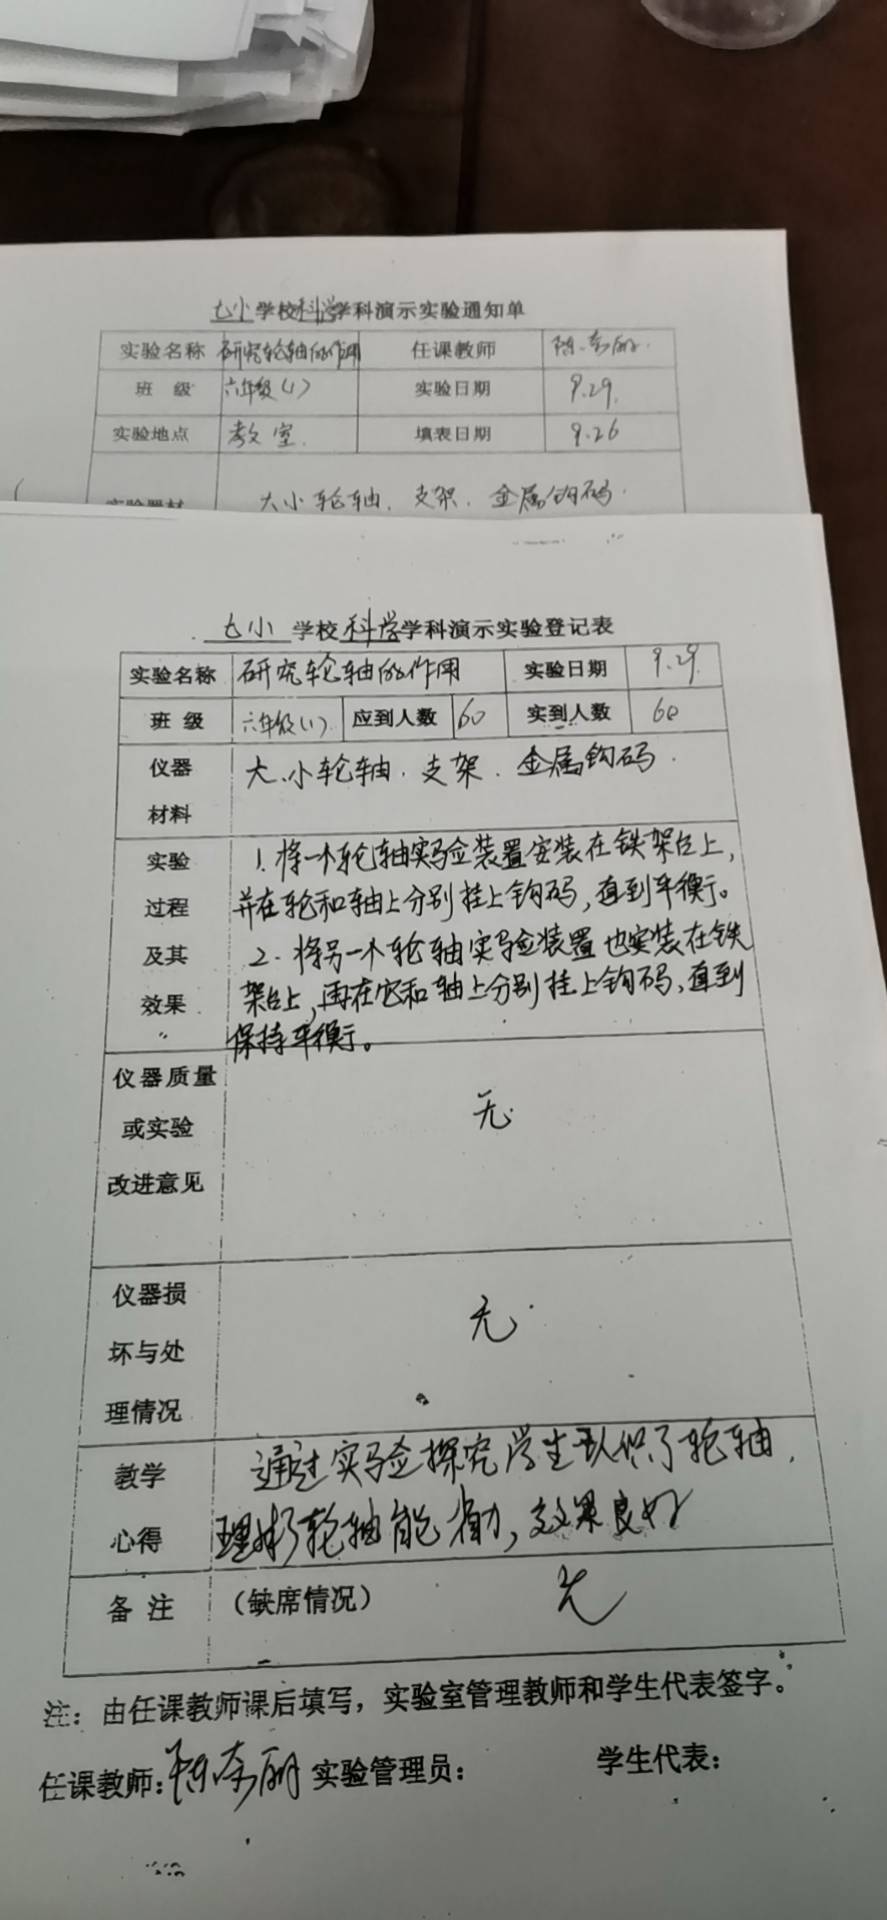 七小学校科学学科演示实验通知单
实验名称 研究轮轴的作用 任课教师 陈秀丽
班 级 六年级(1) 实验日期 9.29
实验地点 教室 填表日期 9.26
实验器材 大小轮轴、支架、金属钩码
七小 学校科学学科演示实验登记表
实验名称 研究轮轴的作用 实验日期 9.29
班 级 六年级(1) 应到人数 60 实到人数 60
仪器 大、小轮轴、支架、金属钩码
材料
实验 1. 将一个轮轴实验装置安装在铁架台上，
过程 并在轮和轴上分别挂上钩码，直到平衡。
及其 2. 将另一个轮轴实验装置也安装在铁
效果 架台上，再在它和轴上分别挂上钩码，直到
保持平衡。
仪器质量
或实验 无
改进意见
仪器损
坏与处 无
理情况
教学 通过实验探究学生认识了轮轴，
心得 理解了轮轴能省力，效果良好
备 注 （缺席情况） 无
注：由任课教师课后填写，实验室管理教师和学生代表签字。
任课教师：陈秀丽 实验管理员： 学生代表：